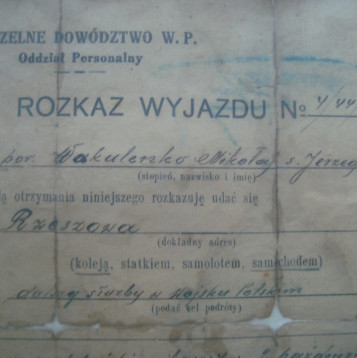 ZELNE DOWÓDZTWO W. P.
Oddział Personalny
ROZKAZ WYJAZDU № 4/44
por. Wakulenko Mikołaj s. Jerzego
(stopień, nazwisko i imię)
lą otrzymania niniejszego rozkazuję udać się
Rzeszowa
(dokładny adres)
(koleją, statkiem, samolotem, samochodem)
dalszej służby w Wojsku Polskim
(podać cel podróży)